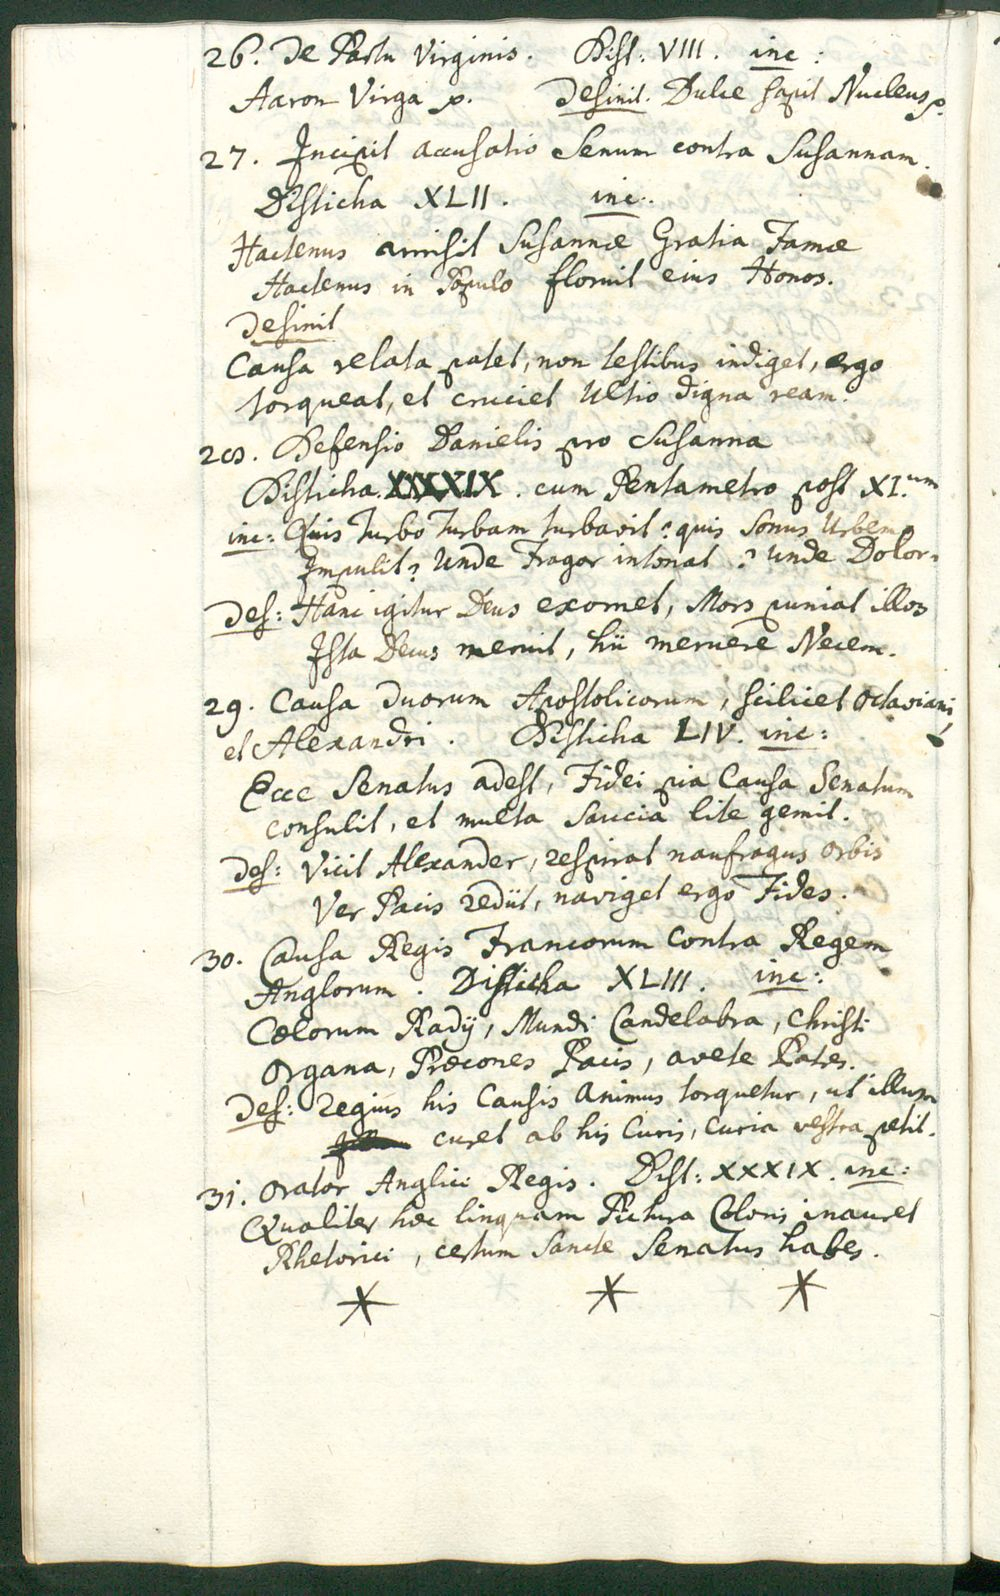 26. De Partu Virginis. Dist: VIII. inc:
Aaron Virga p. Desinit. Dulce sapit Nucleus p.
27. Incipit accusatio Senum contra Susannam.
Disticha XLII. inc:
Hactenus amisit Susannæ Gratia Famæ
Hactenus in Populo floruit eius Honos.
Desinit
Causa relata patet, non testibus indiget, ergo
torqueat, et cruciet Ultio digna ream.
28. Defensio Danielis pro Susanna
Disticha XXXXIX. cum Pentametro post XI.um
inc: Quis Turbo Turbam turbavit? quis Sonus Urbem
Impulit? Unde Fragor intonat? Unde Dolor.
Des: Hanc igitur Deus exornet, Mors puniat illos
Ista Decus meruit, hii meruere Necem.
29. Causa duorum Apostolicorum, scilicet Octaviani,
et Alexandri. Disticha LIV. inc:
Ecce Senatus adest, Fidei pia Causa Senatum
consulit, et multa saucia lite gemit.
Des: Vicit Alexander, respirat naufragus Orbis
Ver Pacis rediit, naviget ergo Fides.
30. Causa Regis Francorum contra Regem
Anglorum. Disticha XLIII. inc:
Cœlorum Radij, Mundi Candelabra, Christi
Organa, Præcones Pacis, avete Patres.
Des: Regius his Causis Animus torquetur, ut illum
curet ab his Curis, Curia vestra petit.
31. Orator Anglici Regis. Dist: XXXIX. inc:
Qualiter hæc linguam Pictura Coloris inauret
Rhetorici, certum Sancte Senatus habes.
* * *